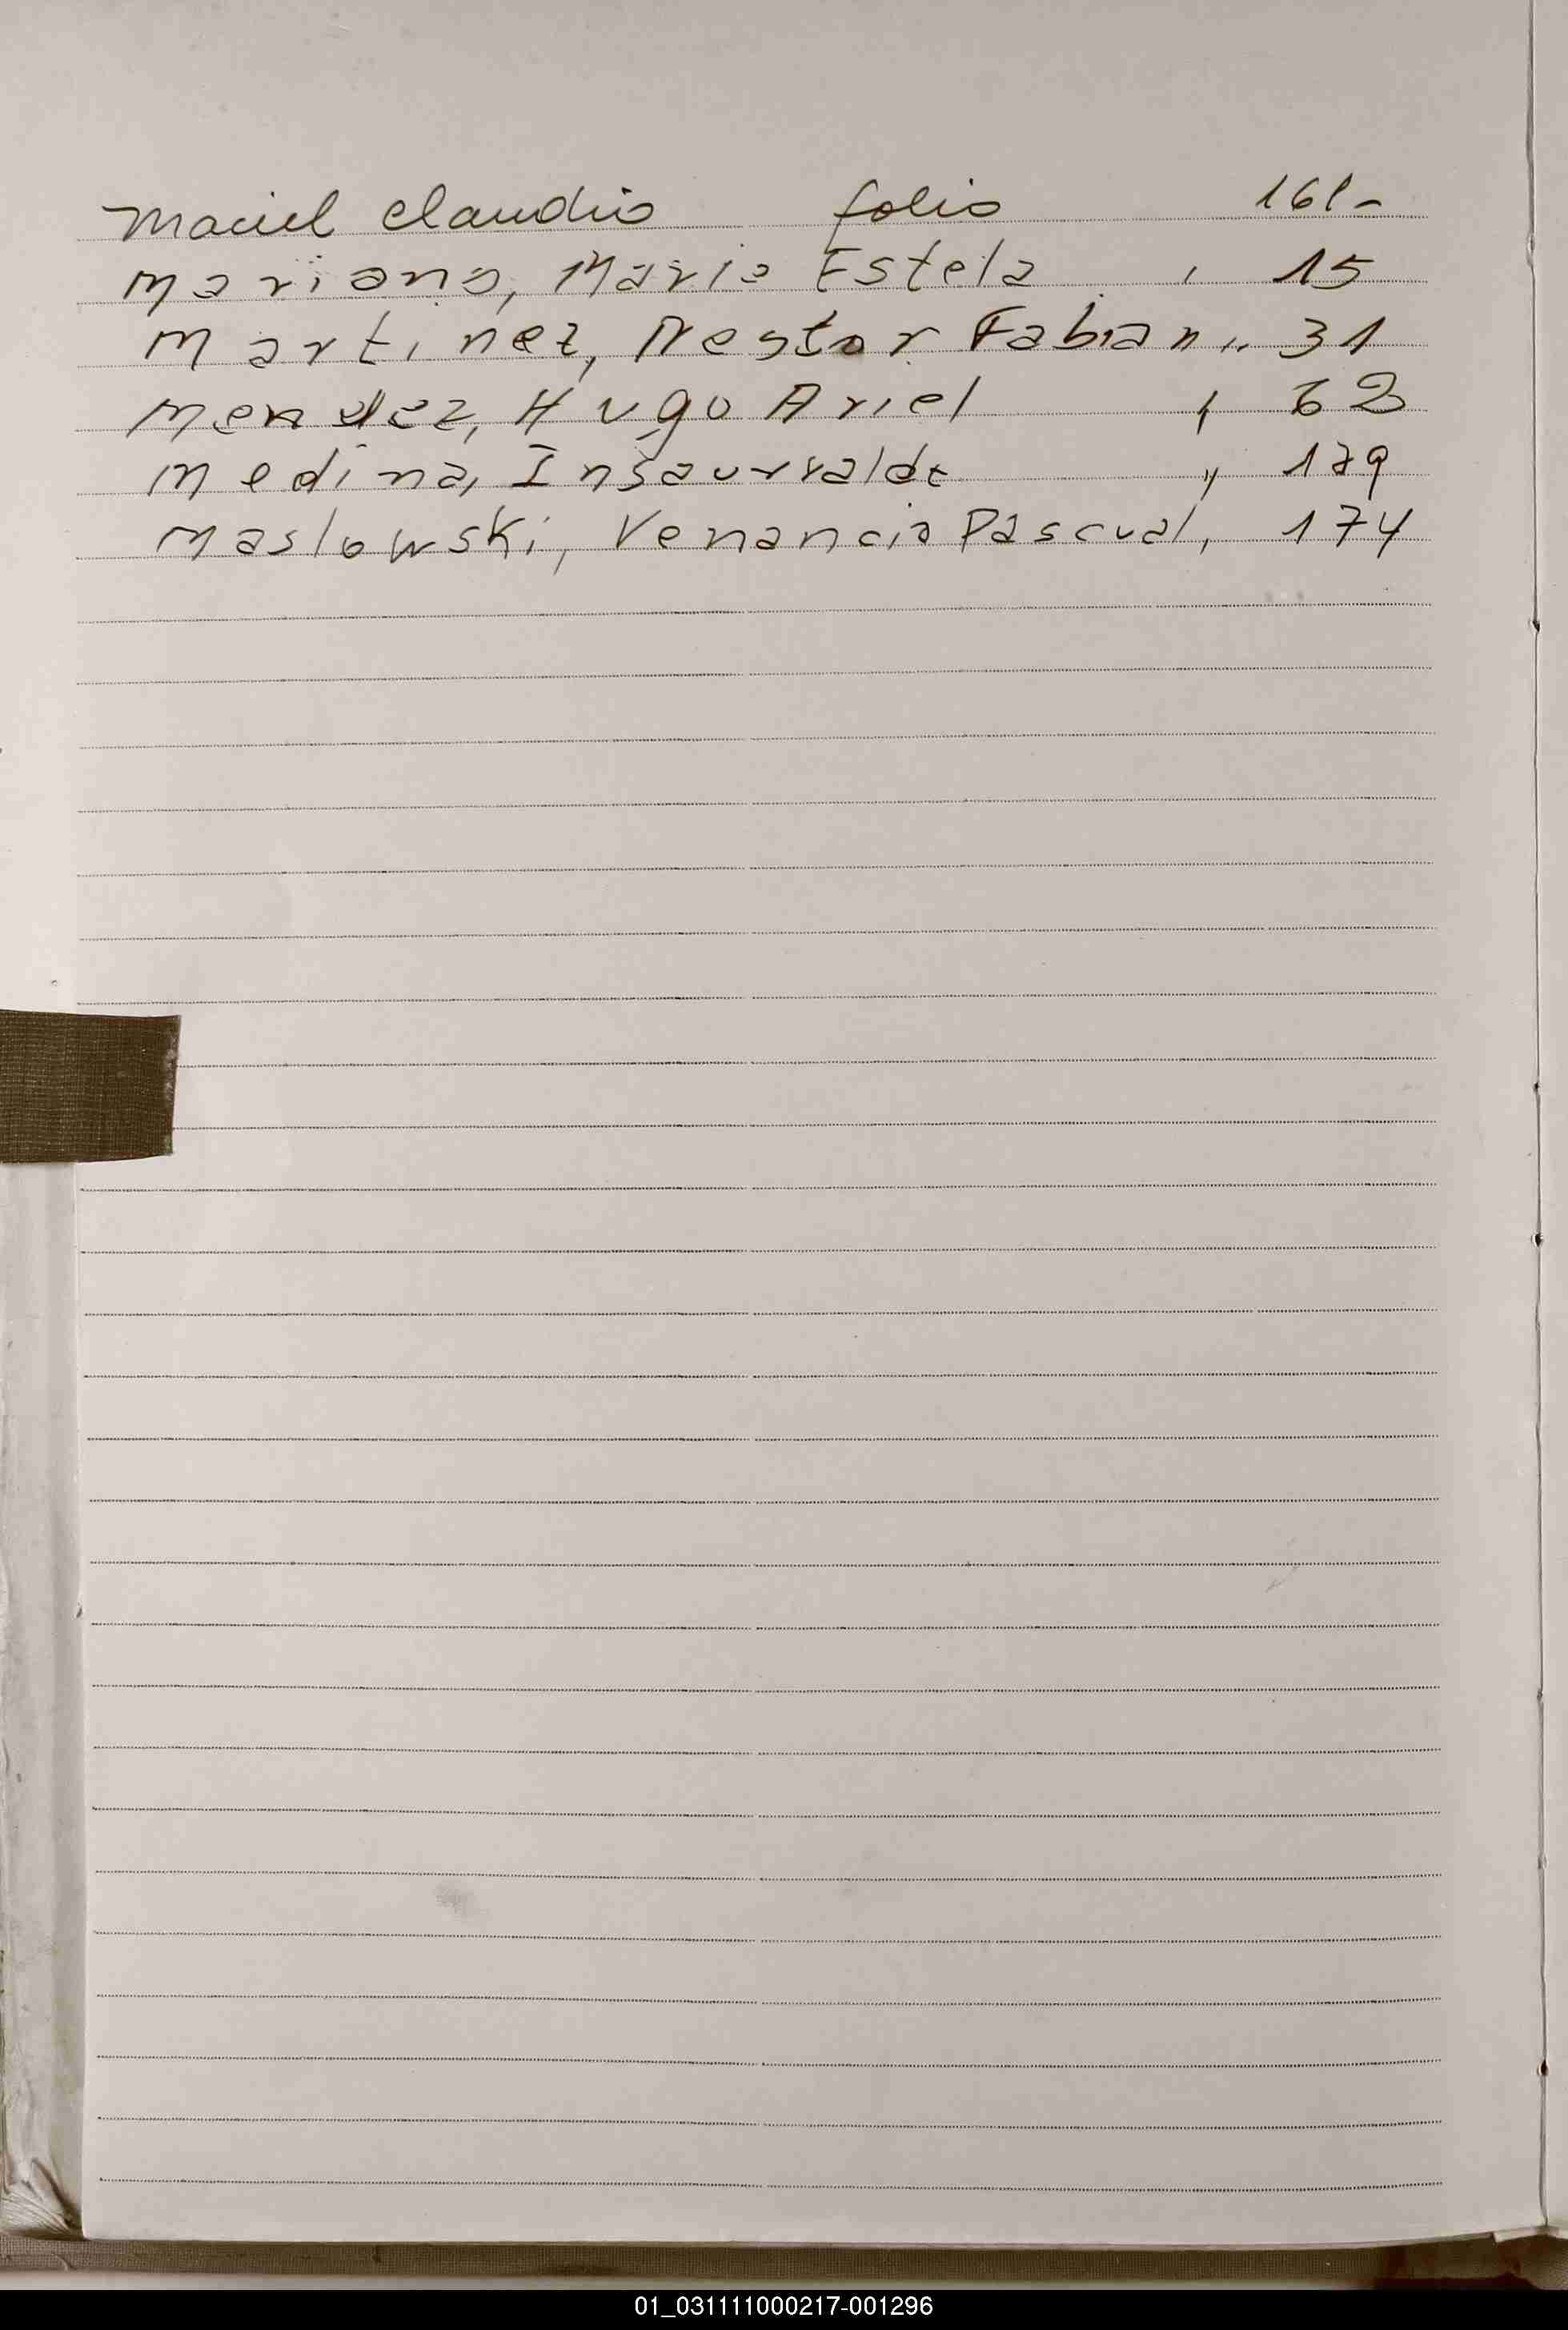 Maciel Claudio folio 161-
Mariano, Maria Estela , 15
Martinez, Nestor Fabian ,, 31
Mendez, Hugo Ariel , 62
Medina, Insaurralde ,, 179
Maslowski, Venancio Pascual, 174
01_031111000217-001296